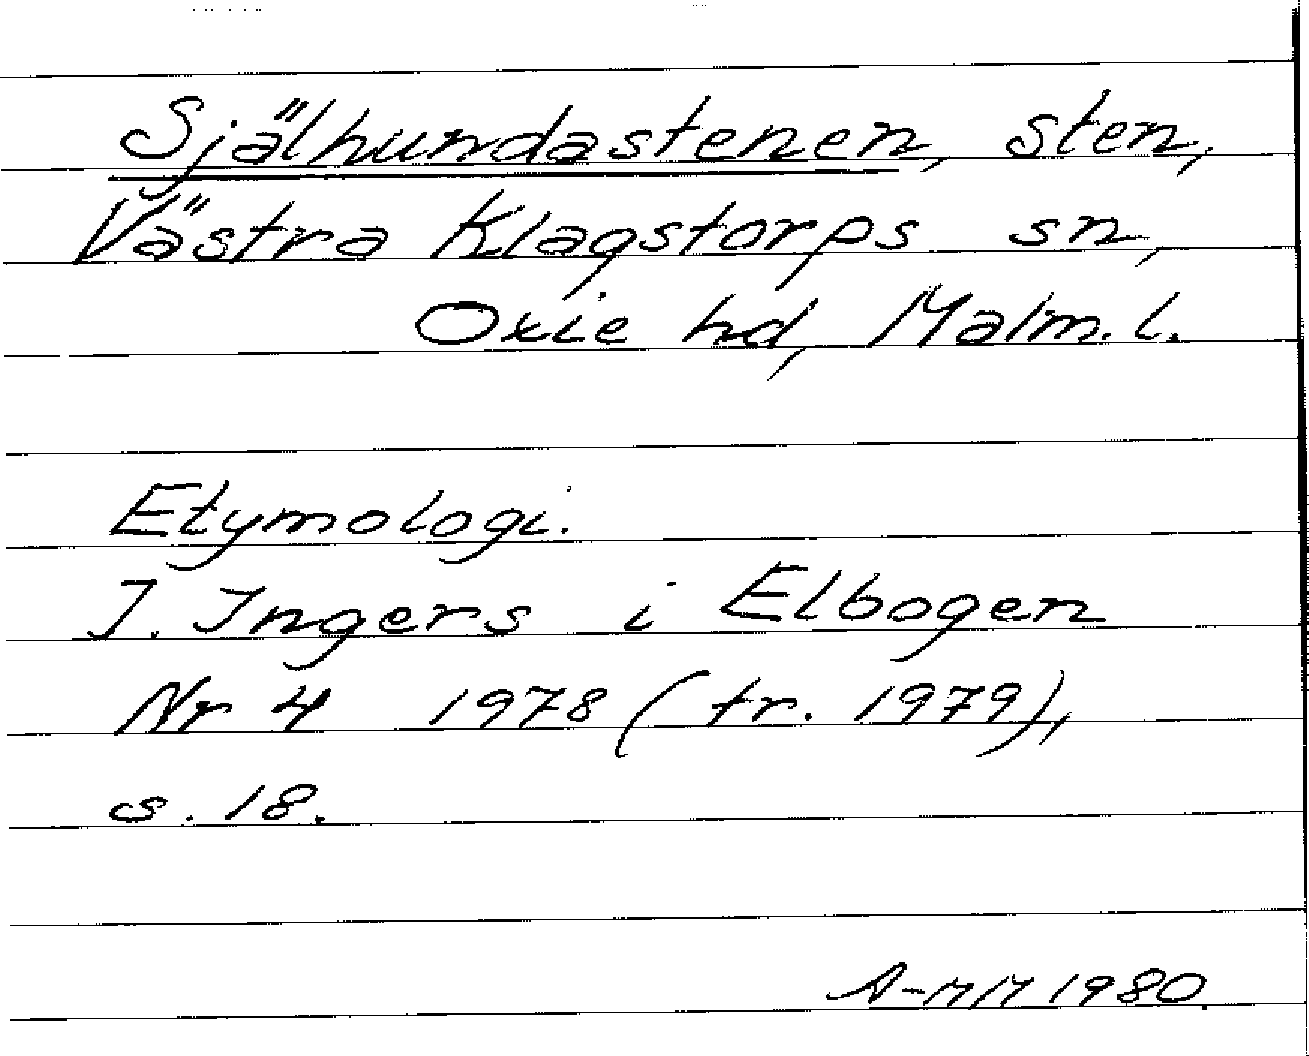 Själhundastenen, sten,
Västra Klagstorps sn,
Oxie hd, Malm. l.
Etymologi.
I. Ingers i Elbogen
Nr 4 1978 (tr. 1979),
s. 18.
A-MM 1980.